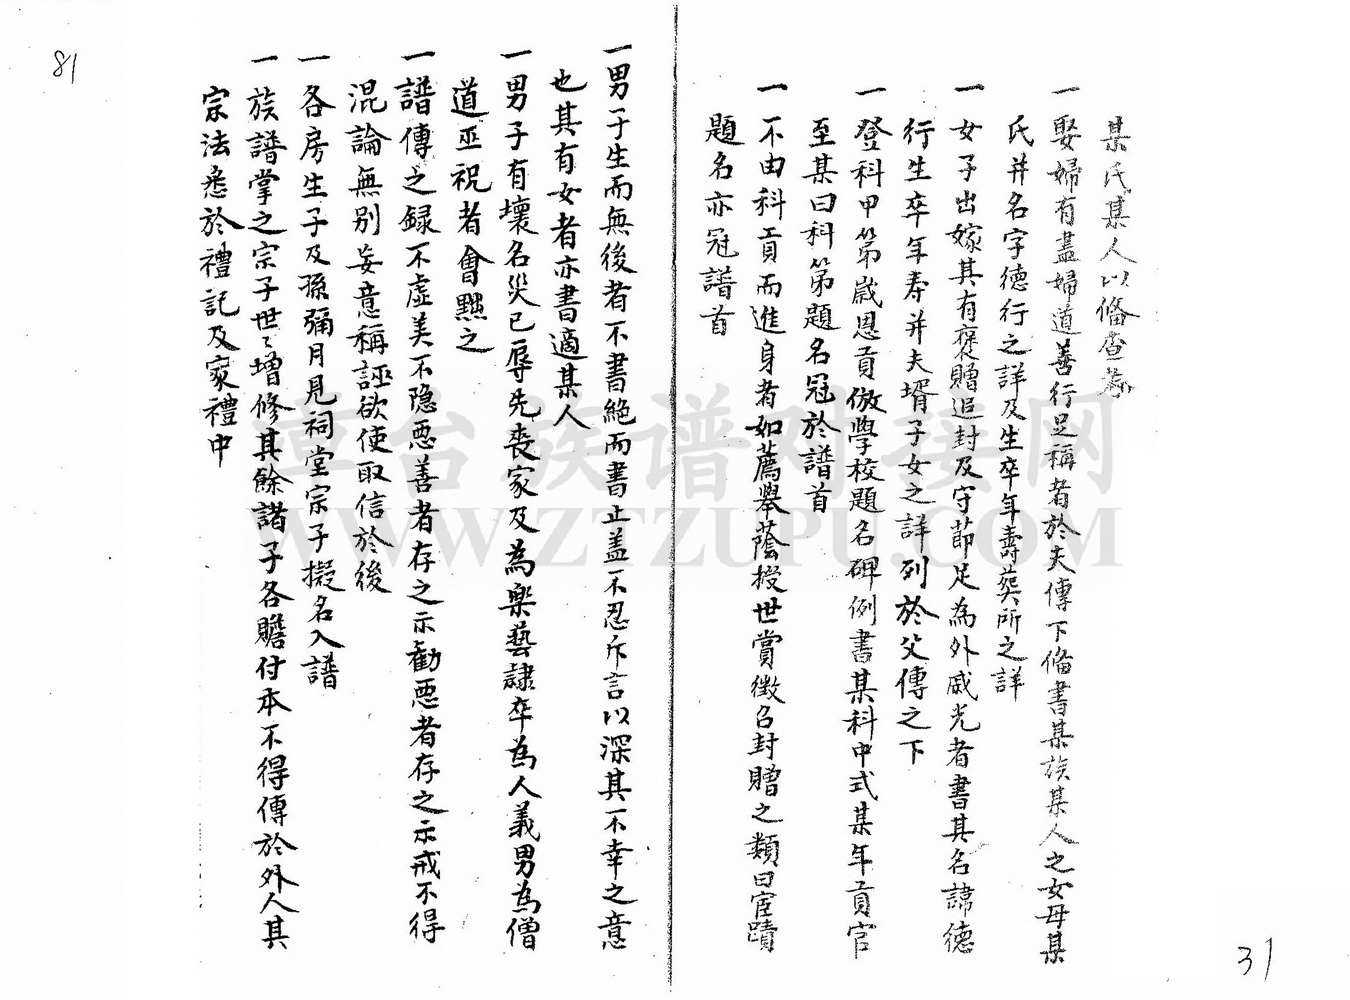 某氏某人以俻查考
一娶婦有盡婦道善行足稱者於夫傳下俻書某族某人之女母某
氏并名字德行之詳及生卒年壽葬所之詳
一女子出嫁其有褒贈追封及守節足為外戚光者書其名諱德
行生卒年寿并夫壻子女之詳列於父傳之下
一登科甲第歲恩貢倣學校題名碑例書某科中式某年貢官
至某曰科第題名冠於譜首
一不由科貢而進身者如薦舉蔭授世賞徴召封贈之類曰宦蹟
題名亦冠譜首
一男子生而無後者不書絕而書止盖不忍斥言以深其不幸之意
也其有女者亦書適某人
一男子有壞名災已辱先喪家及為樂藝隷卒為人義男為僧
道巫祝者會黜之
一譜傳之録不虚美不隐惡善者存之示勸惡者存之示戒不得
混論無别妄意稱誣欲使取信於後
一各房生子及孫彌月見祠堂宗子擬名入譜
一族譜掌之宗子世〻增修其餘諸子各贍付本不得傳於外人其
宗法悉於禮記及家禮中
81
31
章台族谱对接网
WWW.ZTZUPU.COM